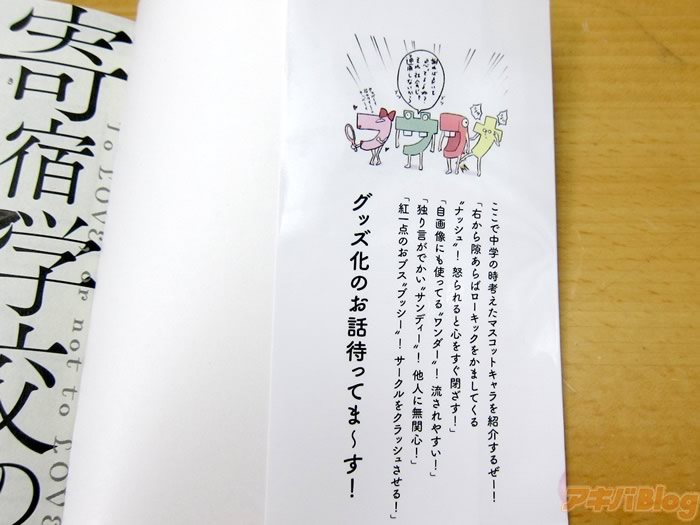 謝れば良いと
思ってるよね?
それ社会じゃ
通用しないから
ここで中学の時考えたマスコットキャラを紹介するぜー!
「右から隙あらばローキックをかましてくる
“ナッシュ”! 怒られると心をすぐ閉ざす!」
「自画像にも使ってる“ワンダー”! 流されやすい!」
「独り言がでかい“サンディー”! 他人に無関心!」
「紅一点のおブス“ブッシー”! サークルをクラッシュさせる!」
グッズ化のお話待ってま〜す!
寄宿学校の
き
To LOVE, or not to LOVE
アキバBlog